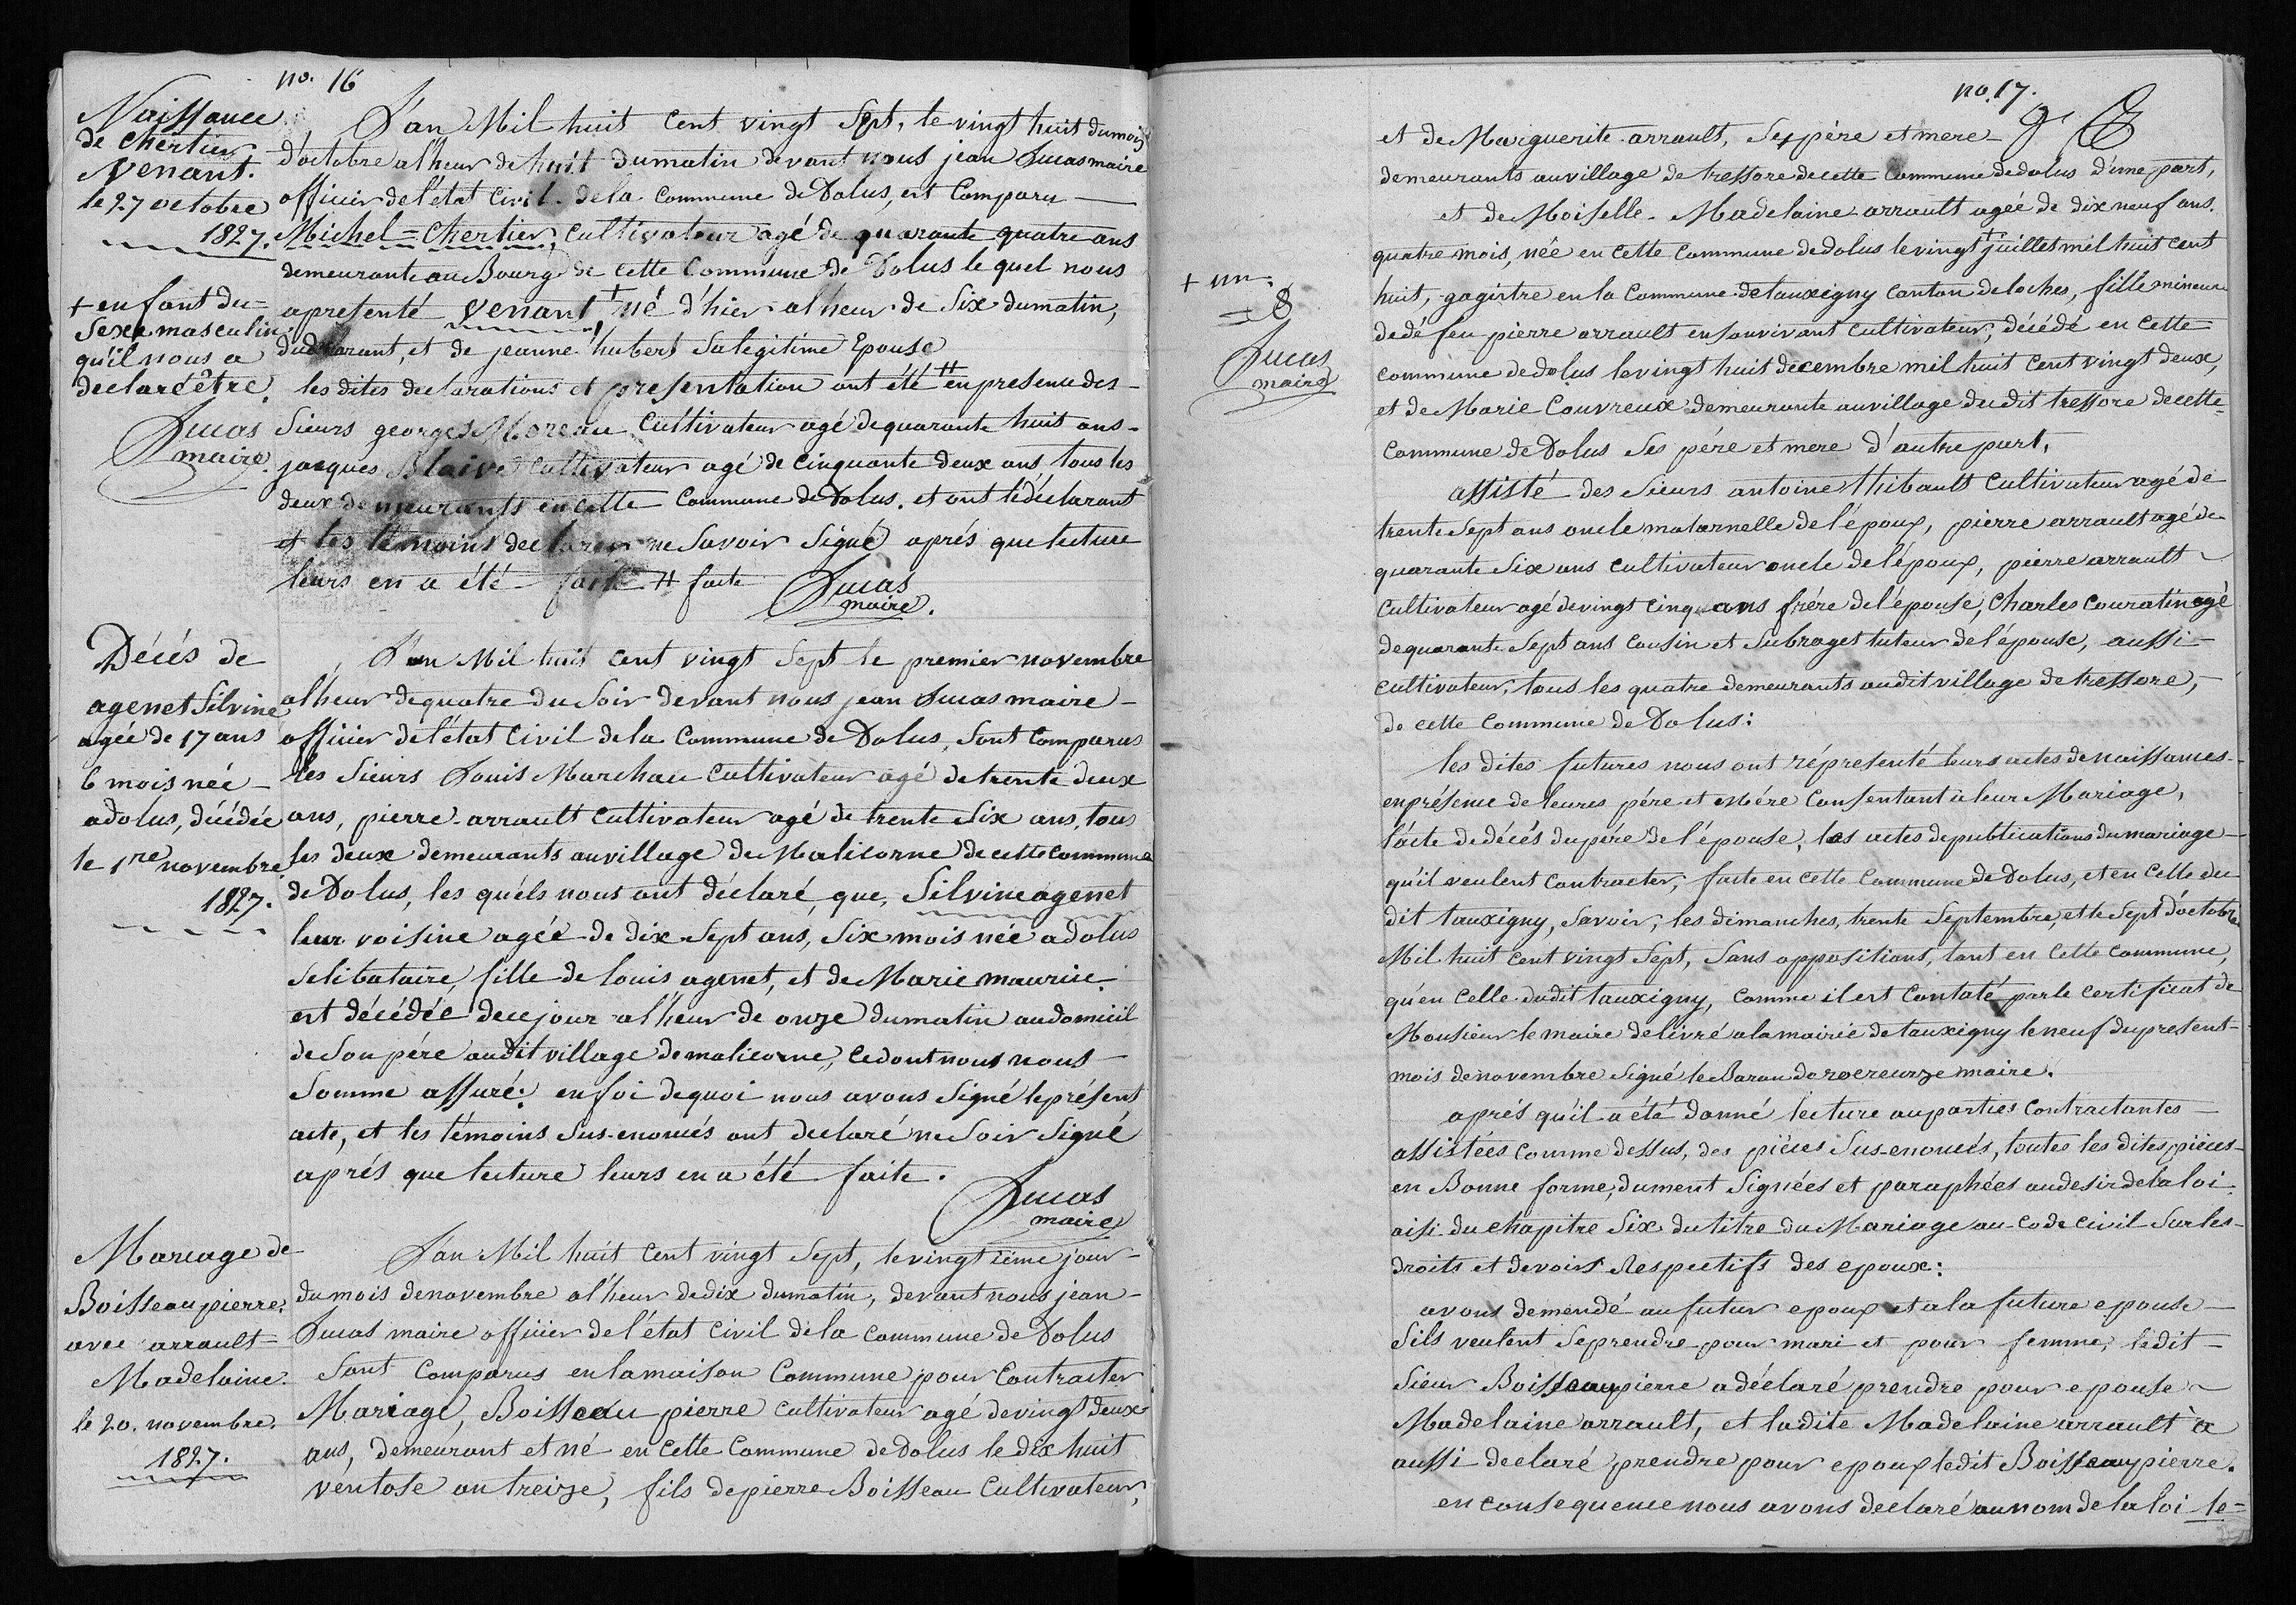 no. 16
Naissance
de chertier
Venant.
le 27 octobre
1827.
+ enfant du
Sexe masculin
qu'il nous a
declaré être.
Lucas
maire
L'an Mil huit Cent vingt Sept, le vingt huit du mois
d'octobre al'heur de huit du matin devant nous jean Lucas maire
officier de l'état Civil de la Commune de Dolus, est Comparu
Michel = Chertier, Cultivateur agé de quarante quatre ans
demeurante au Bourg de cette Commune de Dolus le quel nous
apresenté Venant + né d'hier al'heur de Six du matin,
du declarant, et de jeanne hubert Sa legitime Epouse
les dites declarations et presentation ont été # en presence des
Sieurs georges Moreau Cultivateur agé de quarante huit ans
jacques Blaive Cultivateur agé de Cinquante deux ans, tous les
deux demeurants en cette Commune de Dolus. et ont le déclarant
et les témoins declarer ne Savoir Signé aprés que lecture
leurs en a été faite # faite Lucas
maire.
Décés de
agenet Silvine
agée de 17 ans
6 mois née
a dolus, décédée
le 1re novembre
1827.
L'an Mil huit Cent vingt Sept le premier novembre
al'heur de quatre du Soir devant nous jean Lucas maire
officier de l'état Civil de la Commune de Dolus, Sont Comparus
les Sieurs Louis Marchau Cultivateur agé de trente deux
ans, pierre arrault Cultivateur agé de trente Six ans, tous
les deux demeurants au village de Malicorne de cette commune
de Dolus, les quéls nous ont déclaré, que, Silvine agenet
leur voisine agée de dix Sept ans, Six mois née a dolus
Selibataire, fille de louis agenet, et de Marie maurice
est décédée de ce jour al'heur de onze du matin au domicil
de Son pére au dit village de malicorne, ce dont nous nous
Somme assuré: en foi de quoi nous avons Signé le présent
acte, et les témoins Sus-enoncés ont declaré ne Soir Signé
aprés que lecture leurs en a été faite.
Lucas
maire
Mariage de
Boisseau pierre.
avec arrault
Madelaine.
le 20. novembre.
1827.
L'an Mil huit Cent vingt Sept, le vingt iéme jour
du mois de novembre al'heur de dix du matin, devant nous jean
Lucas maire officier de l'état Civil de la Commune de Dolus
Sont Comparus en la maison Commune pour Contracter
Mariage, Boisseau pierre Cultivateur agé de vingt deux
ans, demeurant et né en Cette Commune de Dolus le dix huit
ventose an treize, fils de pierre Boisseau Cultivateur,
no. 17.
et de Marguerite arrault, Ses pére et mere
demeurants au village de tressore de cette Commune de dolus d'une part,
et de Moiselle Madelaine arrault agée de dix neuf ans.
quatre mois, née en cette Commune de dolus le vingt + juillet mil huit Cent
huit, gagistre en la Commune de tauxigny Canton de loches, fille mineure
de dé feu pierre arrault en Son vivant Cultivateur, décédé en Cette
commune de dolus le vingt huit décembre mil huit Cent vingt deux,
et de Marie Couvreux demeurante au village du dit tressore de cette
Commune de Dolus Ses pére et mere d'autre part,
+ un.
= 8
Lucas
maire
assisté des Sieurs antoine thibault Cultivateur agé de
trente Sept ans oncle maternelle de l'époux, pierre arrault agé de
quarante Six ans Cultivateur oncle de l'époux, pierre arrault
Cultivateur agé de vingt cinq ans frére de l'épouse, Charles Couratin agé
de quarante Sept ans Cousin et Subroget tuteur de l'épouse, aussi
cultivateur, tous les quatre demeurants au dit village de tressore,
de cette Commune de Dolus:
les dites futures nous ont répresenté leurs actes de naissances
en présence de leures pére et Mére Consentant à leur Mariage,
l'acte de décés du pére de l'épouse, les actes de publications du mariage
qu'il veulent Contracter, faite en cette Commune de Dolus, et en Celle du
dit tauxigny, Savoir, les dimanches, trente Septembre, et le Sept d'octobre
Mil huit Cent vingt Sept, Sans oppositions, tant en Cette Commune,
qu'en Celle dudit tauxigny, Comme il est Contaté par le Certificat de
Monsieur le maire delivré a la mairie de tauxigny le neuf du present
mois de novembre Signé le Baron de maire.
aprés qu'il a été donné lecture au parties Contractantes
assistées Comme dessus, des piéces Sus-enoncés, toutes les dites piéces
en Bonne forme, dument Signées et paraphées au desir de la loi.
aisi du chapitre Six du titre du Mariage au Code Civil Sur les
droits et devoirs Respectifs des epoux:
avons demendé au futur epoux et a la future epouse
S'ils veulent Se prendre pour mari et pour femme, le dit
Sieur Boisseau pierre a déclaré prendre pour epouse
Madelaine arrault, et la dite Madelaine arrault à
aussi declaré prendre pour epoux le dit Boisseau pierre.
en Consequence nous avons declaré au nom de la loi le